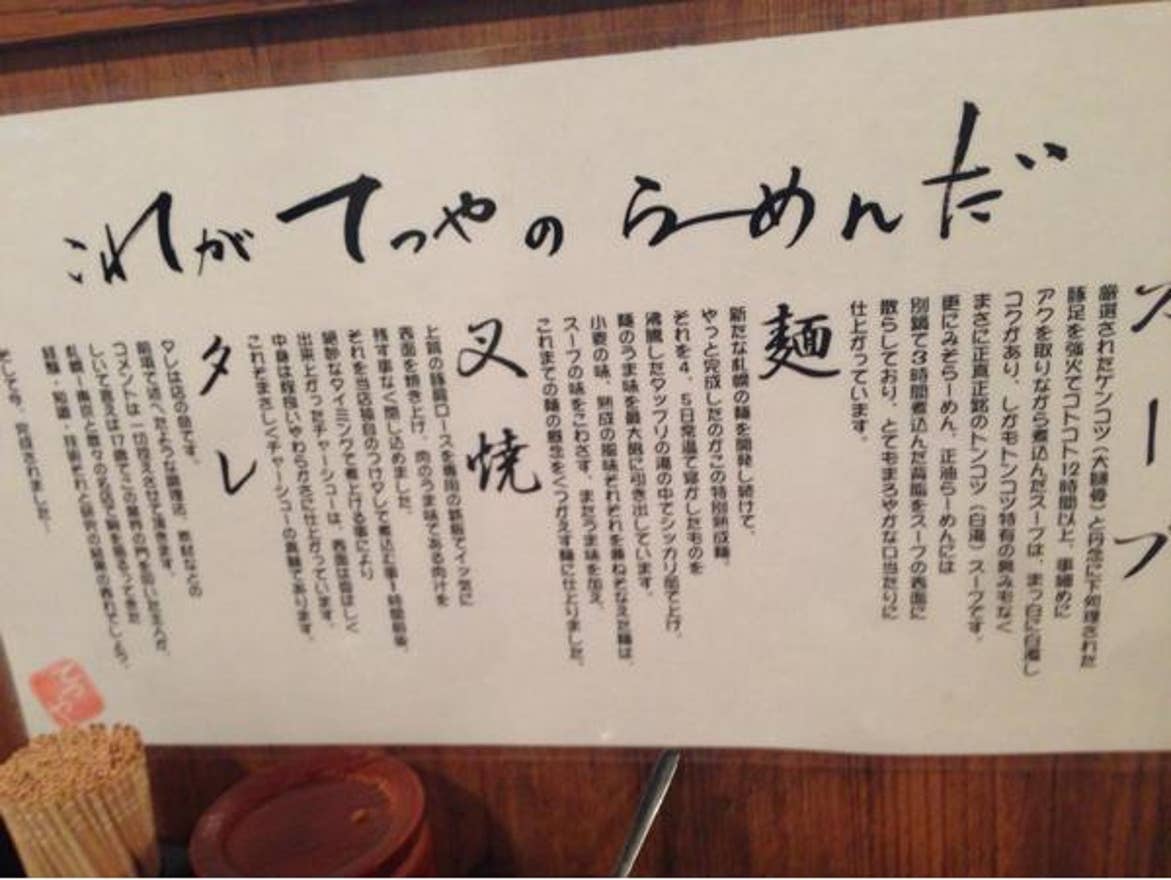 これがてつやのらーめんだ
スープ
厳選されたゲンコツ（大腿骨）と丹念に下処理された
豚足を強火でコトコト12時間以上、事細めに
アクを取りながら煮込んだスープは、まっ白に白濁し
コクがあり、しかもトンコツ特有の臭みもなく
まさに正真正銘のトンコツ（白湯）スープです。
更にみそらーめん、正油らーめんには
別鍋で3時間煮込んだ背脂をスープの表面に
散らしており、とてもまろやかな口当たりに
仕上がっています。
麺
新たな札幌の麺を開発し続けて、
やっと完成したのがこの特別熟成麺。
それを4、5日常温で寝かしたものを
沸騰したタップリの湯の中でシッカリ茹で上げ、
麺のうま味を最大限に引き出しています。
小麦の味、熟成の風味それぞれを兼ねそなえた麺は、
スープの味をこわさず、またうま味を加え、
これまでの麺の概念をくつがえす麺に仕上りました。
叉焼
上質の豚肩ロースを専用の鉄板でイッ気に
表面を焼き上げ、肉のうま味である肉汁を
残す事なく閉じ込めました。
それを当店独自のつけダレで煮込む事1時間前後、
絶妙なタイミングで煮上げる事により
出来上がったチャーシューは、表面は香ばしく
中身は程良いやわらかさに仕上がっています。
これぞまさしくチャーシューの真髄であります。
タレ
タレは店の命です。
前項で述べたような調理法、素材などの
コメントは一切控えさせて頂きます。
しいて言えば17歳でこの業界の門を叩いた主人が、
札幌―東京と数々の名店で腕を振るってきた
経験・知識・技術それと研究の結果の表れでしょう。
そして今、完成されました…
てつや